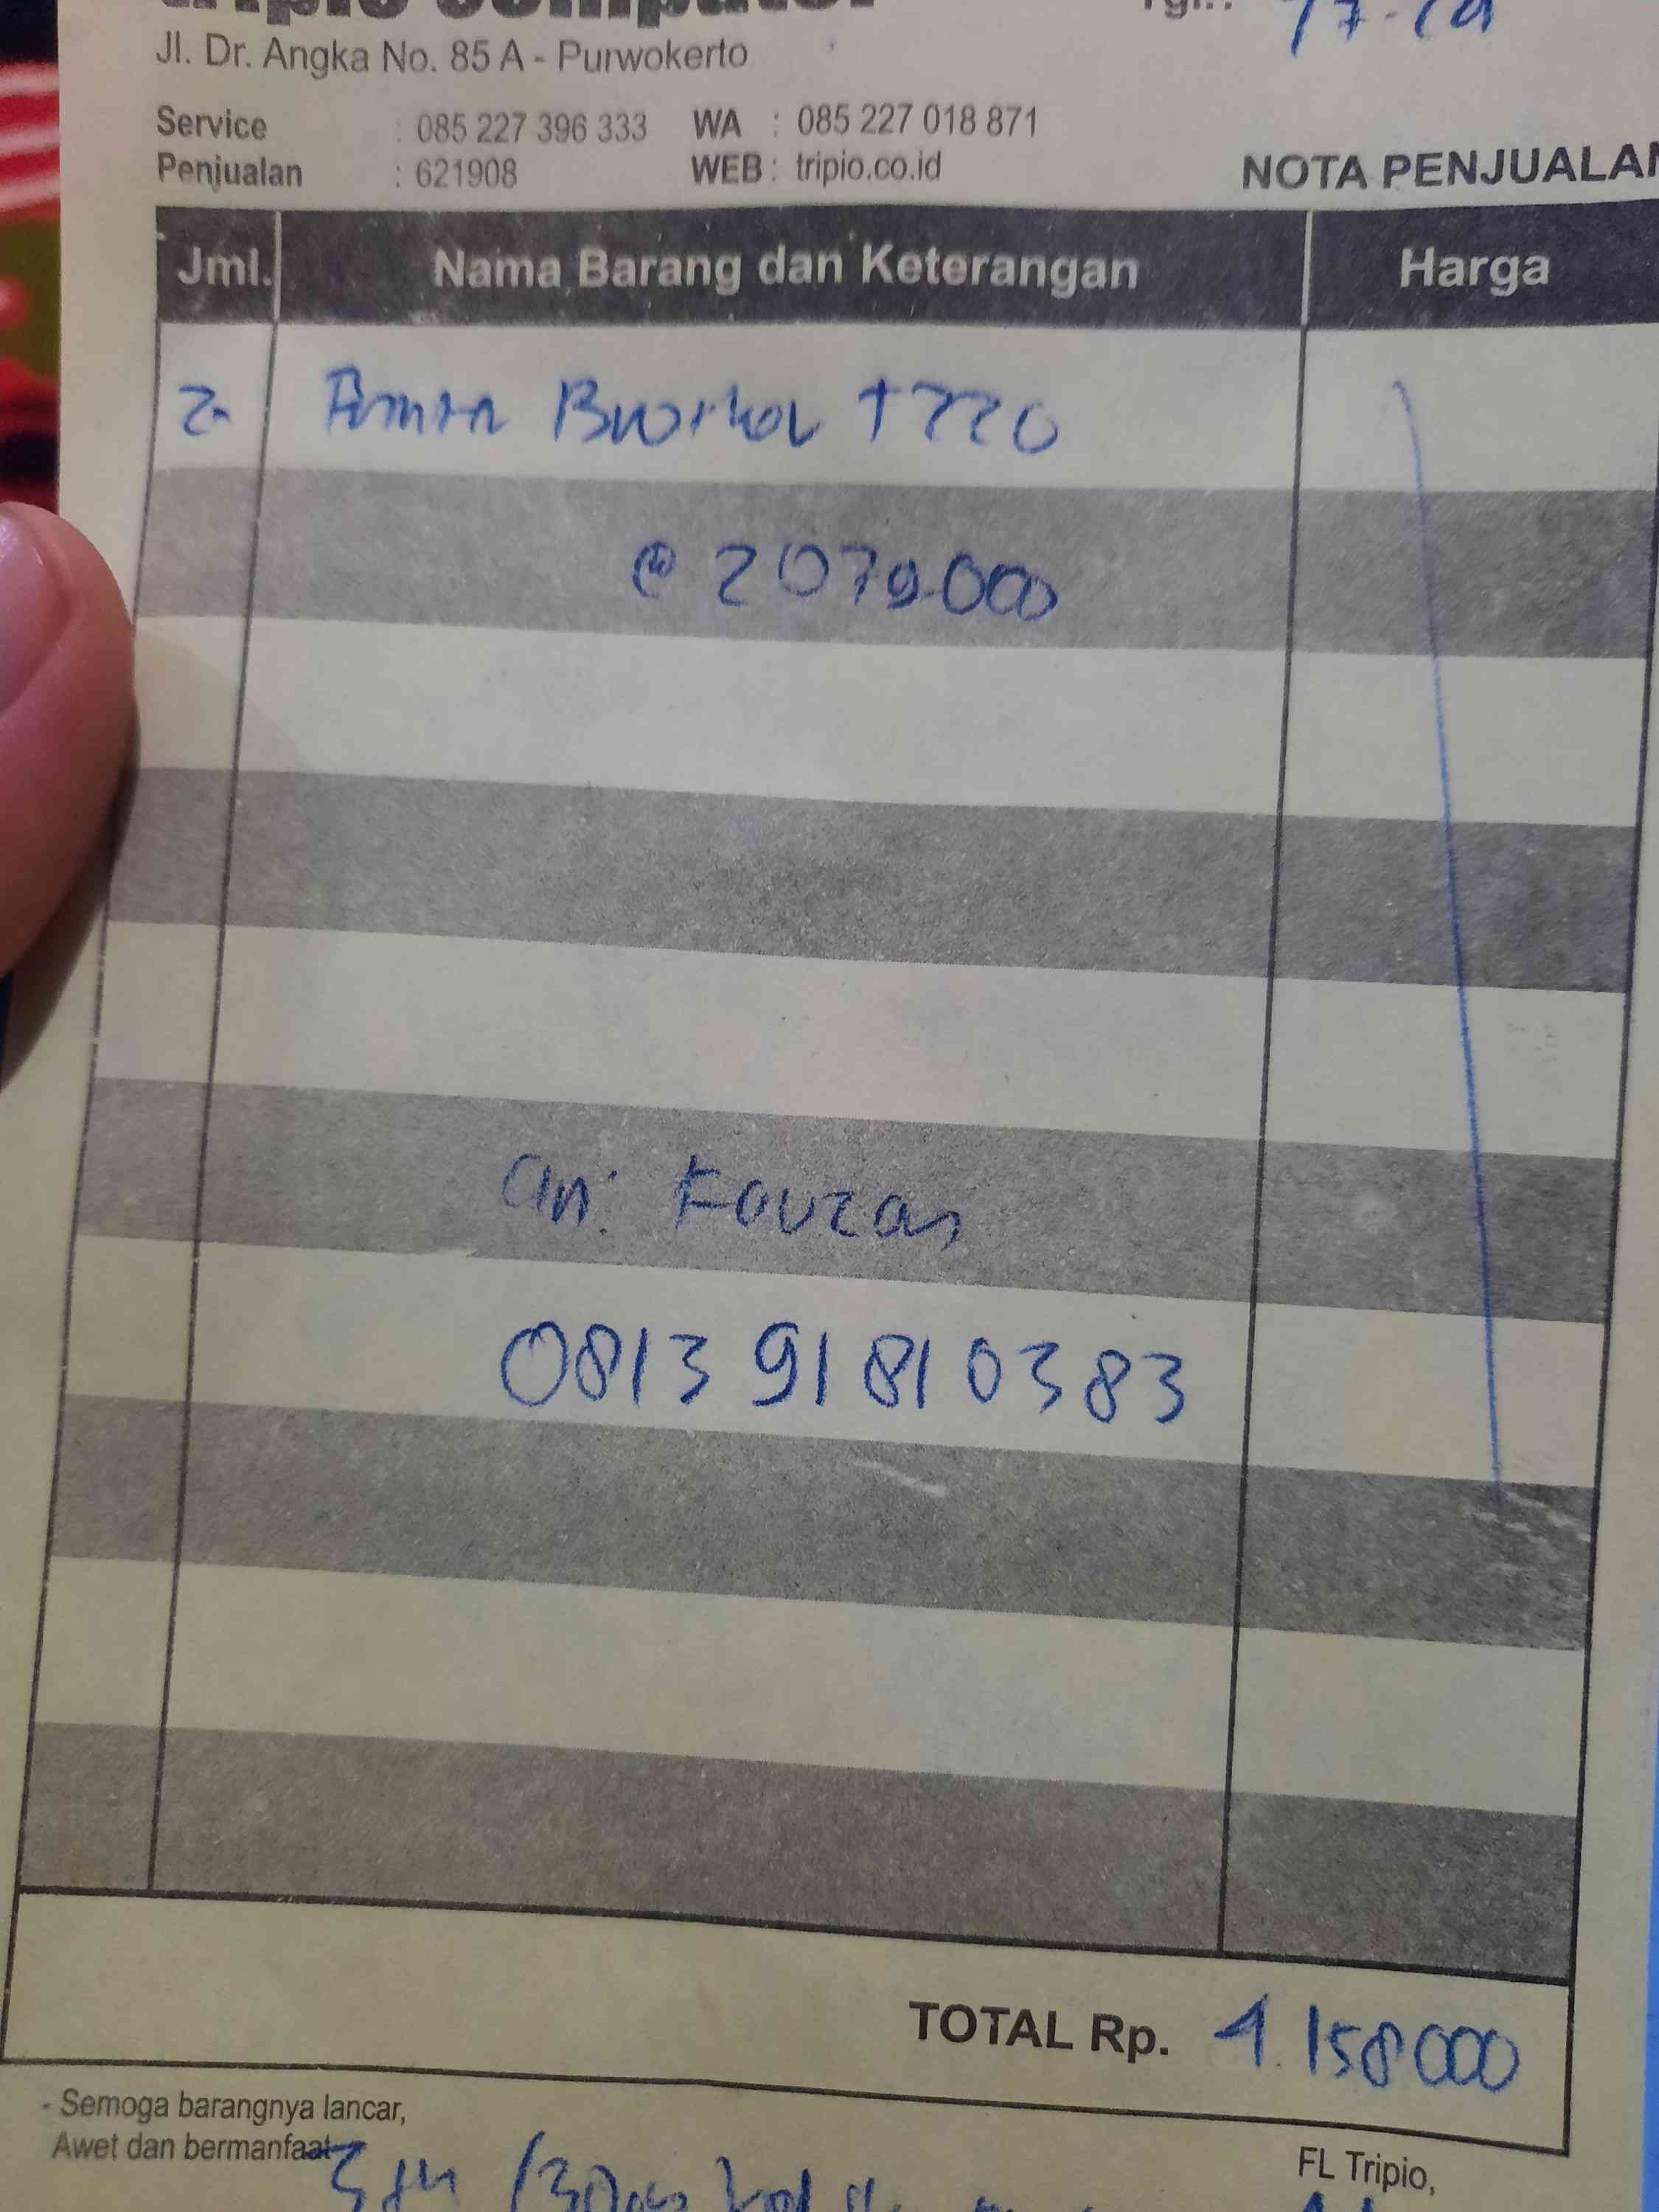 tripio computer Tgl. :
Jl. Dr. Angka No. 85 A - Purwokerto
Service : 085 227 396 333 WA : 085 227 018 871
Penjualan : 621908 WEB : tripio.co.id
NOTA PENJUALAN
Jml. Nama Barang dan Keterangan Harga
2 T220
@ 2079.000
an: Fauzan
0813 91810383
TOTAL Rp. 4.158000
- Semoga barangnya lancar,
Awet dan bermanfaat
FL Tripio,